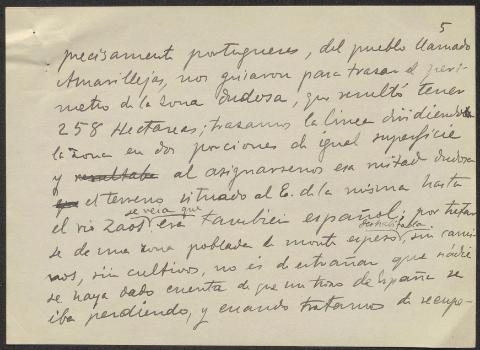 5
precisamente portugueses, del pueblo llamado
Amarillejas, nos guiaron para trazar el perí-
metro de la zona dudosa, que resultó tener
258 Hectareas; trazamos la linea dividiendo
la zona en dos porciones de igual superficie
y resultaba al asignarsenos esa mitad dudosa
que el terreno situado al E. de la misma hasta
se veia que
el rio Zaos era tambien español; por tratar
deshabitada
se de una zona poblada de monte espeso, sin cami-
nos, sin cultivos, no es de extrañar que nadie
se haya dado cuenta de que un trozo de España se
iba perdiendo, y cuando tratamos de recupe-